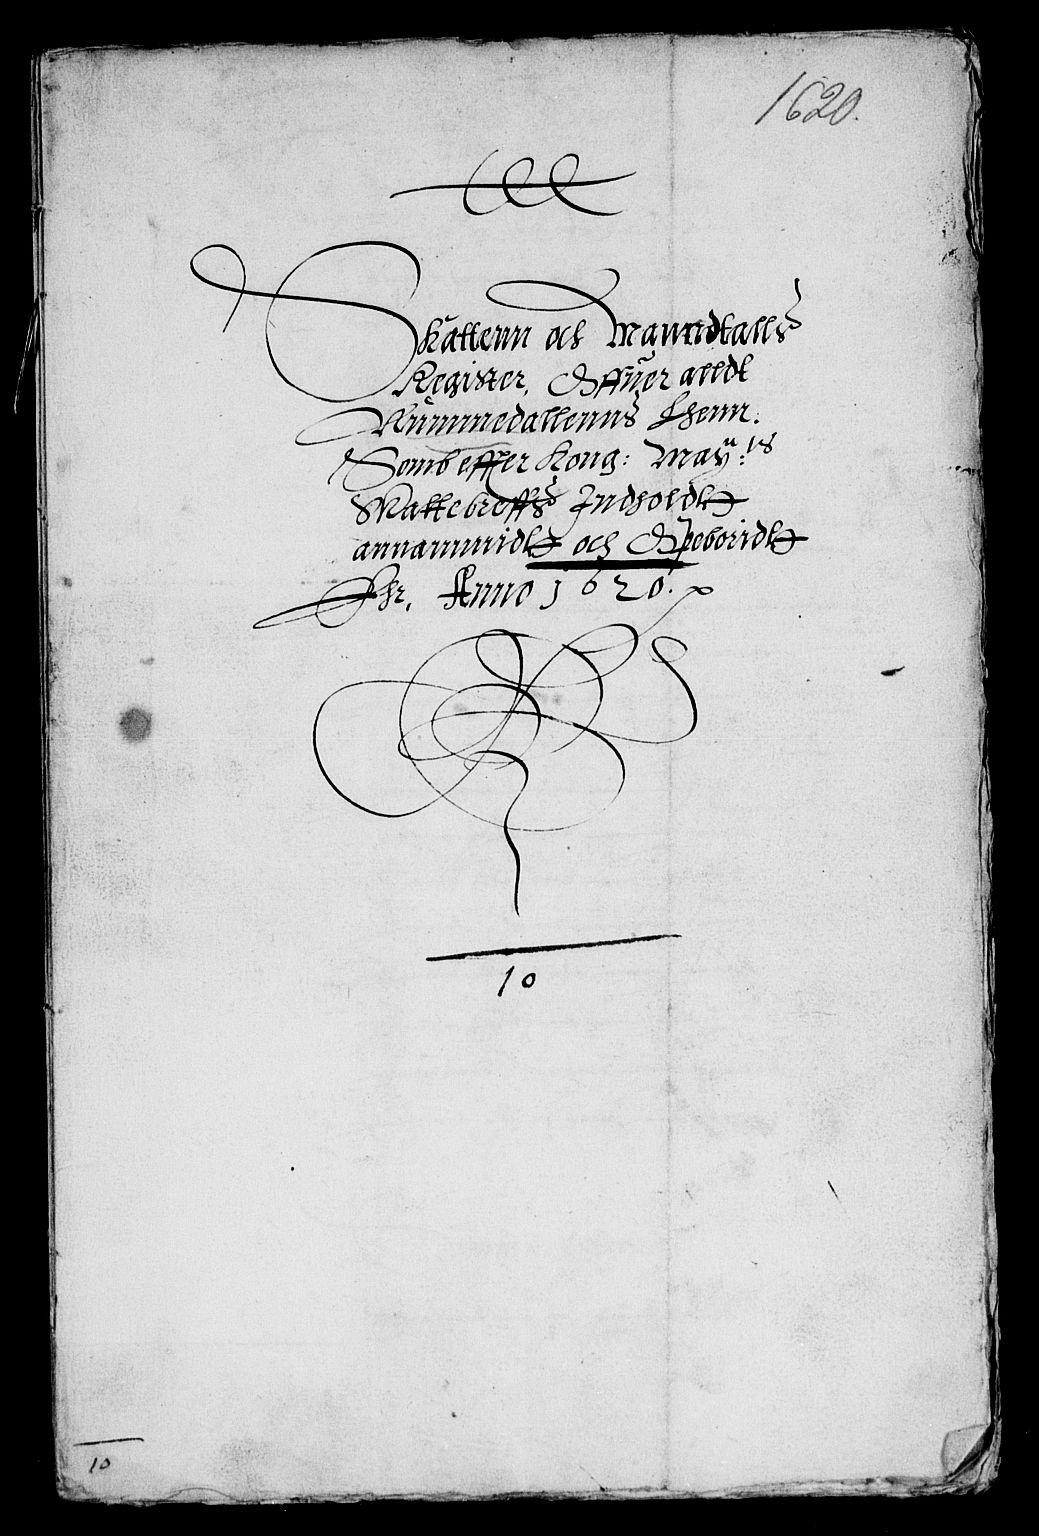 1620.
Skattenn och Manndtalls
Register, Offuer alldt
Nummedallenns Lhenn.
Somb effter Kong: May:ts
Skattebreffs Indholdt
annammidt och Opeboridt
Er. Anno 1620.
10
10